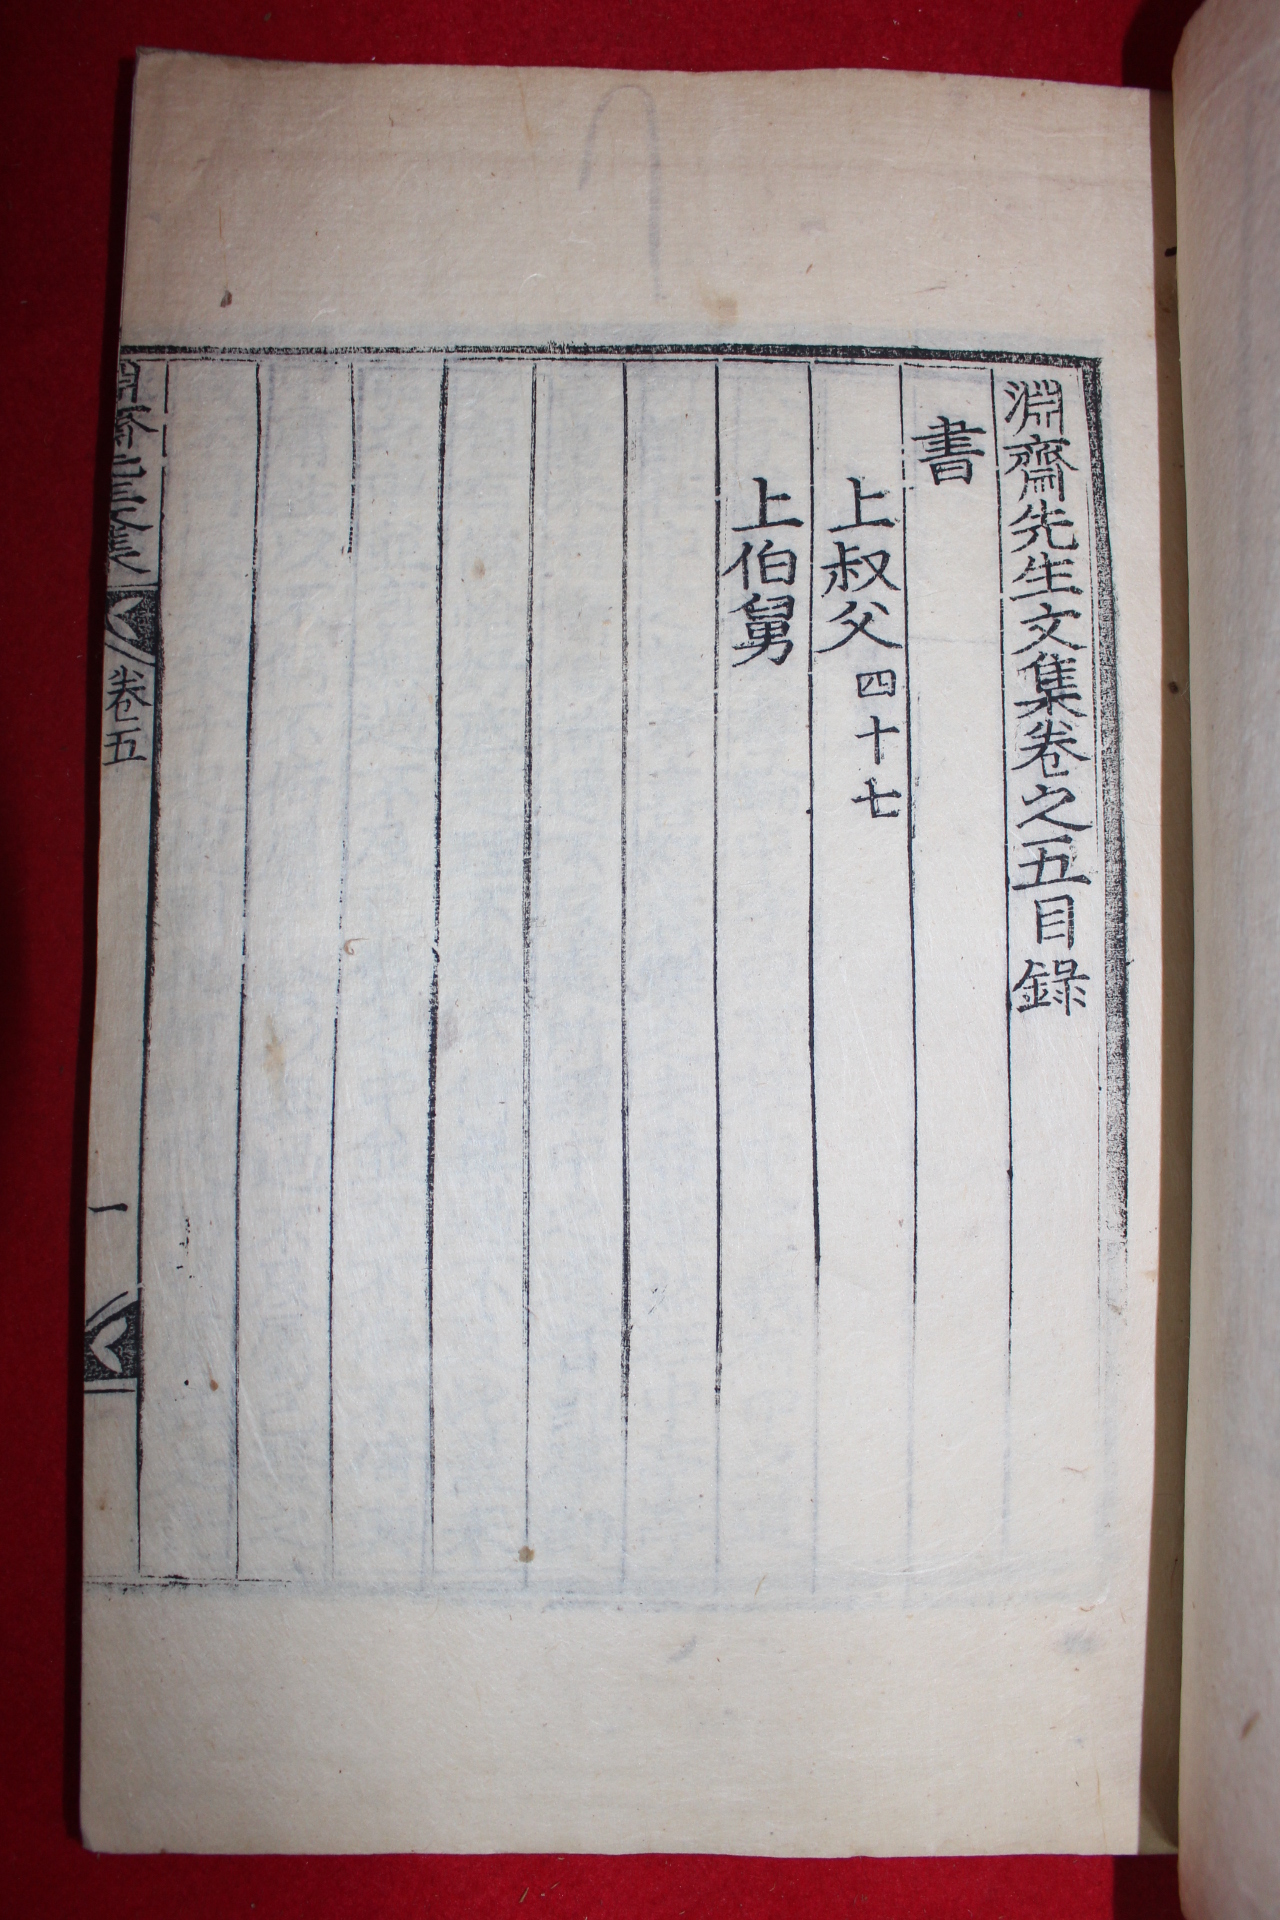 淵齋先生文集卷之五目錄
書
上叔父四十七
上伯舅
淵齋先生文集
卷五
一